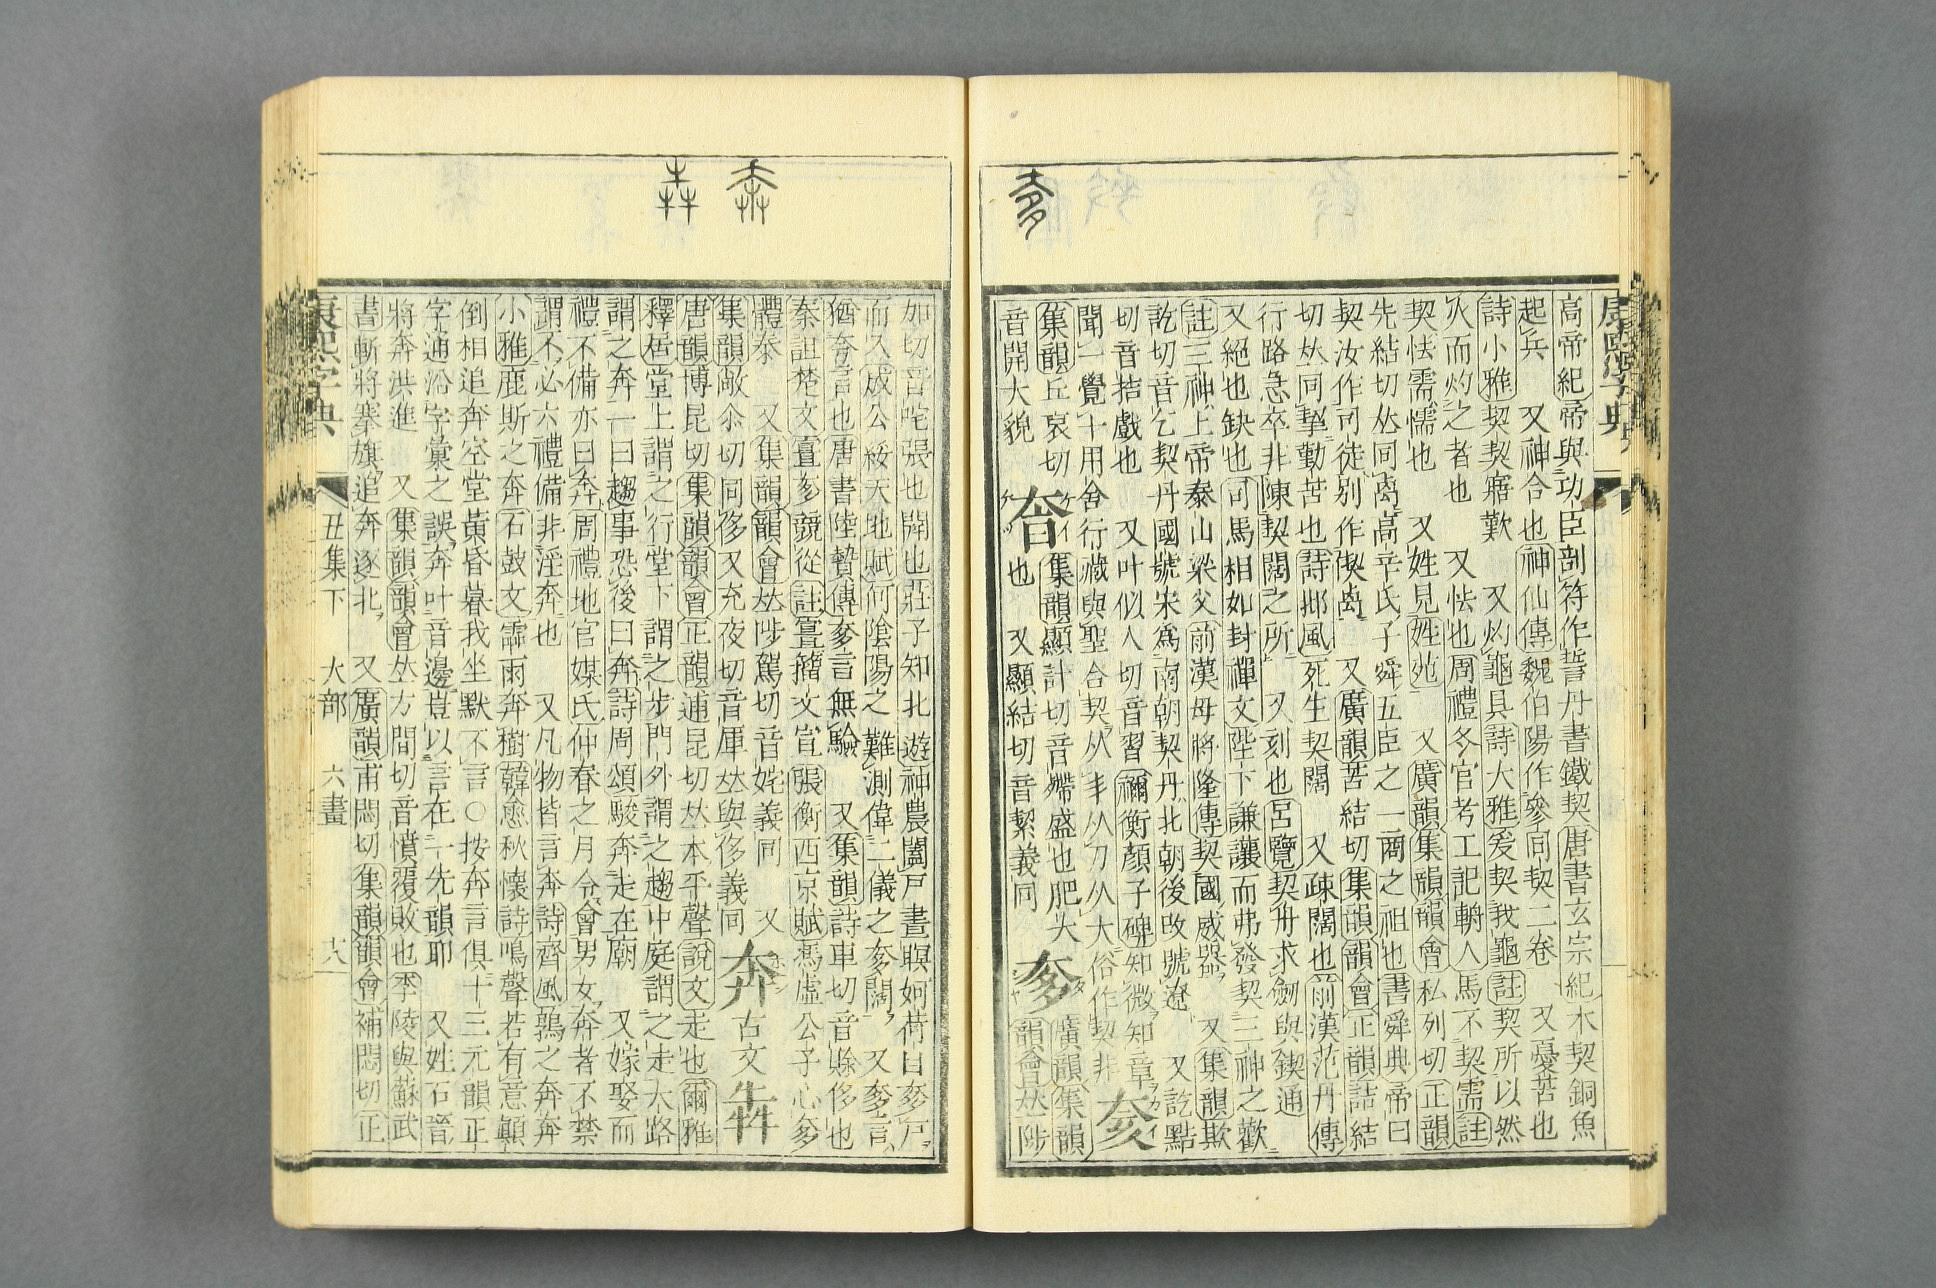 高帝紀帝與功臣剖符作誓丹書鐵契唐書玄宗紀木契銅魚
起兵 又神合也神仙傳魏伯陽作參同契二卷 又憂苦也
詩小雅契契寤歎 又灼龜具詩大雅爰契我龜註契所以然
火而灼之者也 又怯也周禮冬官考工記輈人馬不契需註
契怯需懦也 又姓見姓苑 又廣韻集韻韻會私列切正韻
先結切𠀤同卨高辛氏子舜五臣之一商之祖也書舜典帝曰
契汝作司徒別作偰卨 又廣韻苦結切集韻韻會正韻詰結
切𠀤同挈勤苦也詩邶風死生契闊 又疎闊也前漢范丹傳
行路急卒非陳契闊之所 又刻也呂覽契舟求劒與鍥通
又絕也缺也司馬相如封禪文陛下謙讓而弗發契三神之歡
註三神上帝泰山梁父前漢毋將隆傳契國威器 又集韻欺
訖切音乞契丹國號宋爲南朝契丹北朝後改號遼 又訖黠
切音拮戲也 又叶似入切音習禰衡顏子碑知微知章
聞一覺十用舍行藏與聖合契从丯从刀从大俗作契非 㚊 廣韻集韻
集韻丘哀切音開大貌
㚛 集韻顯計切音㰥盛也肥大也 又顯結切音絜義同
奓 廣韻集韻韻會𠀤陟
加切音咤張也開也莊子知北遊神農闔戸晝瞑妸荷甘奓戸
而入成公綏天地賦何陰陽之難測偉二儀之奓闊 又奓言
猶夸言也唐書陸贄傳奓言無驗 又集韻詩車切音賒侈也
秦詛楚文宣奓競從註宣籒文宣張衡西京賦馮虛公子心奓
體泰 又集韻韻會𠀤陟駕切音奼義同 又
集韻敞尒切同侈又充夜切音厙𠀤與侈義同
奔 古文 犇
唐韻博昆切集韻韻會正韻逋昆切𠀤本平聲說文走也爾雅
釋宮堂上謂之行堂下謂之步門外謂之趨中庭謂之走大路
謂之奔一曰趨事恐後曰奔詩周頌駿奔走在廟 又嫁娶而
禮不備亦曰奔周禮地官媒氏仲春之月令會男女奔者不禁
謂不必六禮備非淫奔也 又凡物皆言奔詩齊風鶉之奔奔
小雅鹿斯之奔石鼓文霝雨奔樹韓愈秋懷詩鳴聲若有意顚
倒相追奔空堂黃昏暮我坐默不言○按奔言俱十三元韻正
字通沿字彙之誤奔叶音邊豈以言在一先韻耶 又姓石晉
將奔洪進 又集韻韻會𠀤方問切音僨覆敗也李陵與蘇武
書斬將搴旗追奔逐北 又廣韻甫悶切集韻韻會補悶切正
康熙字典 丑集下 大部 六畫 十八